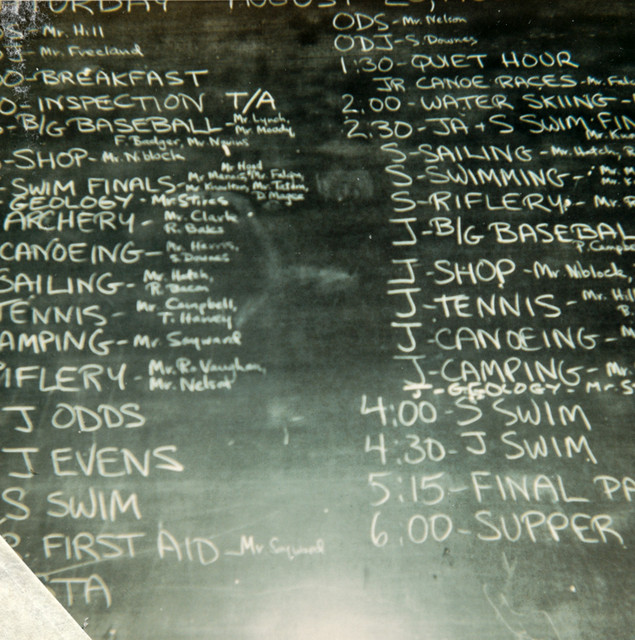 AUGUST
Mr. Hill
Mr. Freeland
BREAKFAST
INSPECTION T/A
B/G BASEBALL - Mr. Lynch,
Mr. Moody,
F. Badger, Mr.
SHOP - Mr. Niblock
SWIM FINALS -
GEOLOGY - Mr. Stires
ARCHERY - Mr. Clark
CANOEING - Mr. Harris,
S. Downes
SAILING - Mr. Hatch,
R. Bacon
TENNIS - Mr. Campbell,
T. Harvey
AMPING - Mr. Sayward
IFLERY - Mr. R. Vaughan,
J ODDS
J EVENS
S SWIM
FIRST AID - Mr. Sayward
TA
ODS - Mr. Nelson
ODJ - S. Downes
1:30 - QUIET HOUR
JR CANOE RACES - Mr.
2:00 - WATER SKIING -
2:30 - JA + S SWIM FIN
S - SAILING -
S - SWIMMING -
S - RIFLERY -
J - B/G BASEBAL
J - SHOP - Mr. Niblock,
J - TENNIS - Mr. Hil
J - CANOEING -
J - CAMPING -
J - GEOLOGY - Mr. S
4:00 - S SWIM
4:30 - J SWIM
5:15 - FINAL PA
6:00 - SUPPER